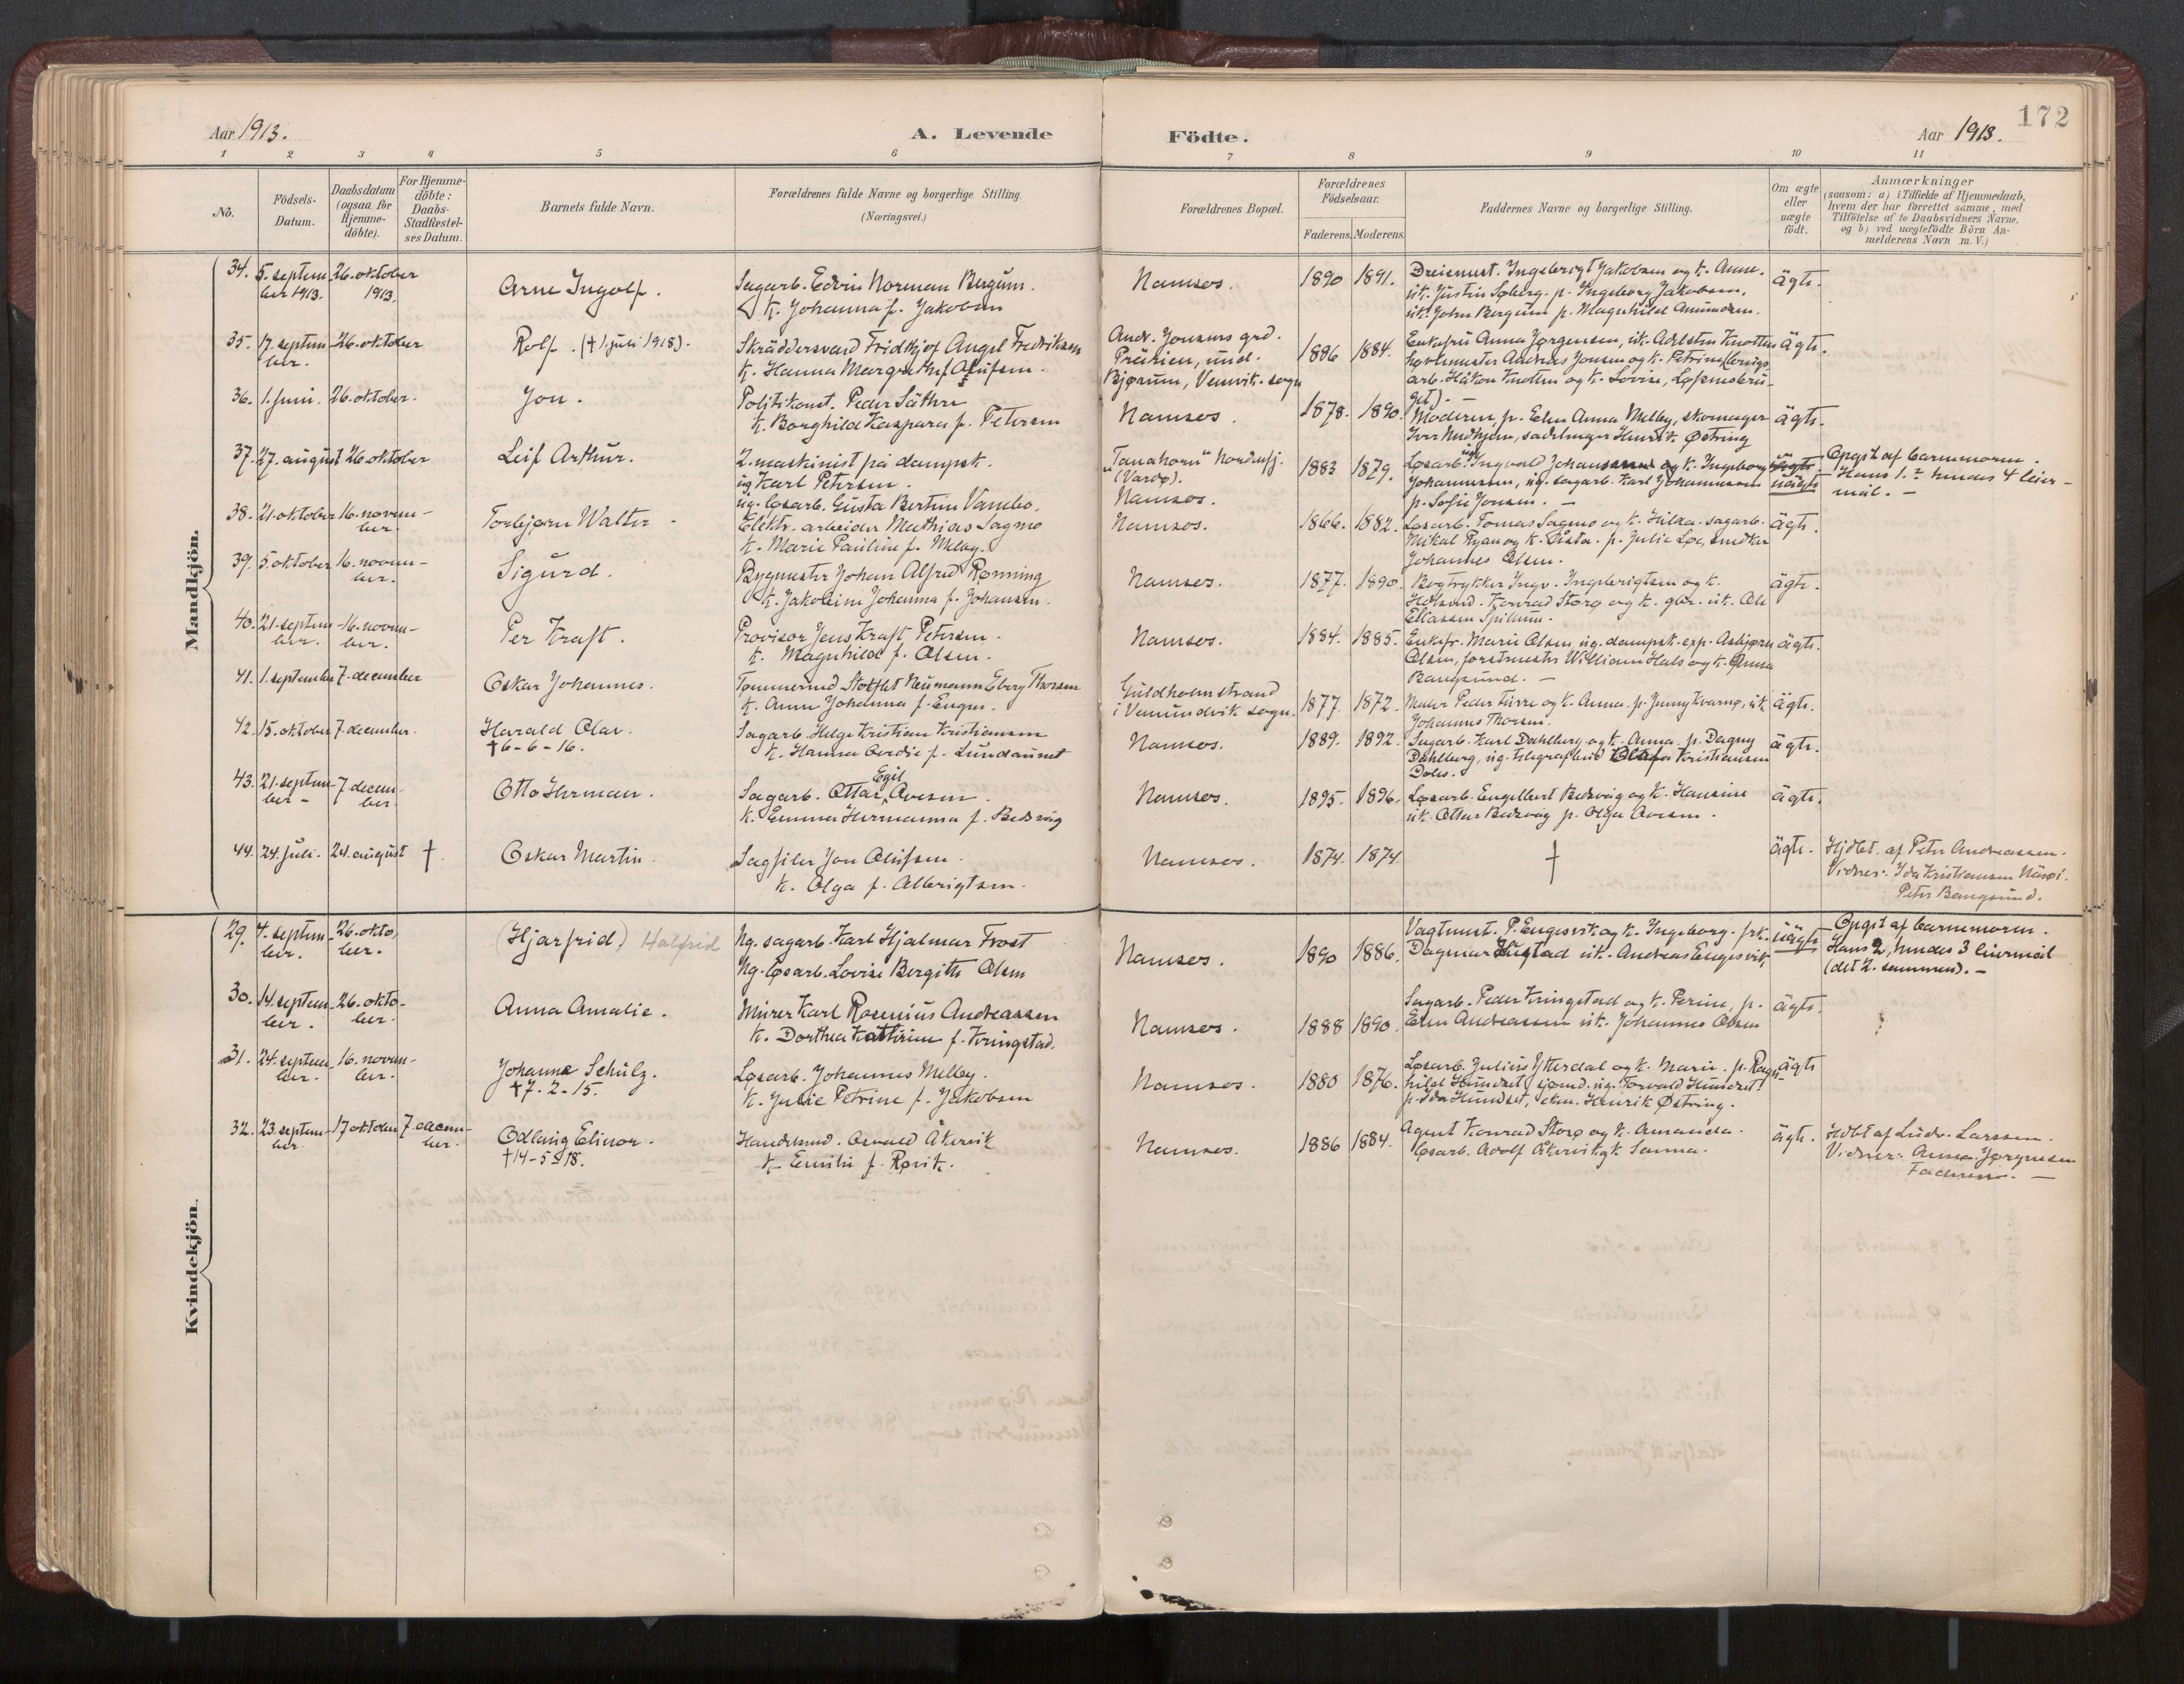 172
Aar 1913.
A. Levende
Födte.
Aar 1913.
1 2 3 4 5 6 7 8 9 10 11
No.
Födsels-
Datum.
Daabsdatum
(ogsaa for
Hjemme-
döbte).
For Hjemme-
döbte:
Daabs-
Stadfæstel-
ses Datum.
Barnets fulde Navn.
Forældrenes fulde Navne og borgerlige Stilling.
(Næringsvei.)
Forældrenes Bopæl.
Forældrenes
Födselsaar.
Faderens. Moderens.
Faddernes Navne og borgerlige Stilling.
Om ægte
eller
uægte
födt.
Anmærkninger
(saasom: a) i Tilfælde af Hjemmedaab,
hvem der har forrettet samme, med
Tilföielse af to Daabsvidners Navne,
og b) ved uægtefödte Börn An-
melderens Navn m. V.)
Mandkjön.
34. 5. septem- 26. oktober
ber 1913. 1913.
Arne Ingolf.
Sagarb. Edvin Norman Bergum.
k. Johanna f. Jakobsen
Namsos.
1890 1891.
Dreiemest. Ingebrigt Jakobsen og k. Anne.
uk. Justin Soberg. p. Ingeborg Jakobsen,
uk. John Bergum p. Magnhild Amundsen.
ägte.
35. 17. septem- 26. oktober
ber.
Rolf. († 1 juli 1918).
Skräddersvend Fridthjof Angel Fredriksen
k. Hanna Margrethe f. Olufsen.
Andr. Jonsens grd.
Prärien, und.
Bjørum, Vemvik. sogn
1886 1884.
Enkefru Anna Jørgensen, uk. Adelsten Knotten
Andreas Jonsen og k. Petrine,
arb. Håkon Knotten og k. Lovise,
ägte.
36. 1. juni. 26. oktober.
Jon.
Politikonst. Peder Säther
k. Borghild Kaspara f. Petersen
Namsos.
1878. 1890.
Moderen, p. Elen Anna Melby, skomager
Iver Nedhjem, sadelmager Henrik Østring
ägte.
37. 27. august 26 oktober
Leif Arthur.
2. maskinist på dampsk.
ug Karl Petersen.
ug. løsarb. Gusta Bertine Vambo.
"Tanahorn" Nordrefj.
(Vardø).
Namsos.
1883 1879.
Løsarb. Ingvald Johansen og k. Ingeborg
Johannesen, ug. sagarb. Karl Johannesen
p. Sofie Jonsen. -
ägte
uägte
Opgit af barnemoren.
Hans 1. hendes 4 leier-
mål. -
38. 21. oktober 16. novem-
ber.
Torbjørn Walter.
Elektr. arbeider Mathias Sagmo
k. Marie Pauline f. Melby.
Namsos.
1866. 1882.
Løsarb. Tomas Sagmo og k. Hilda. sagarb.
Mikal Ryan og k. p. Julie Loe, snedker
Johannes Olsen.
ägte.
39. 5. oktober 16. novem-
ber.
Sigurd.
Bygmester Johan Alfred Rønning
k. Jakobine Johanna f. Johansen.
Namsos.
1877. 1890.
Bogtrykker Ingv. Ingebrigtsen og k.
Konrad Storø og k. gbr. uk. Ole
Eliassen Spillum.
ägte.
40. 21. septem- 16. novem-
ber. ber.
Per Kraft.
Provisor Jens Kraft Petersen.
k. Magnhild f. Olsen.
Namsos.
1884. 1885.
Enkefr. Marie Olsen, ug. dampsk. exp. Asbjørn
Olsen, forstmester William Hals og k. Anna
Bangsund. -
ägte.
41. 1. september 7. december
Oskar Johannes.
Tømmermd Neumann Eberg Thorsen
k. Anne Johanna f. Engen.
Guldholmstrand
i Vemundvik sogn.
1877. 1872.
Maler Peder Lirre og k. Anna. p. Jenny Kvarnø, uk.
Johannes Thorsen.
ägte.
42. 15. oktober 7. december.
Harald Olav.
† 6-6-16.
Sagarb. Helge Kristian Kristiansen
k. Hanna Ovedie f. Lundaunet
Namsos.
1889. 1892.
Sagarb. Karl Dahlberg og k. Anna. p. Dagny
Dahlberg, ug. telegrafbud Olaf Kristiansen
ägte.
43. 21. septem- 7. decem-
ber - ber.
Otto Herman.
Egil
Sagarb. Ottar Ovesen.
k. Emma Hermanna f. Bedsvåg
Namsos.
1895. 1896.
Løsarb. Engelbert Bedsvåg og k. Hansine
uk. Ottar Bedsvåg p. Olga Ovesen.
ägte.
44. 24. juli. 24. august †.
Oskar Martin.
Sagfiler Jon Olufsen.
k. Olga f. Albrigtsen.
Namsos.
1874. 1874
†
ägte.
Hjdbt. af Peter Andreassen.
Vidner: Ida Kristiansen
Peter Bangsund.
Kvindekjön.
29. 4. septem- 26. okto-
ber. ber.
(Hjarfrid) Halfrid
Ug. sagarb. Karl Hjalmar Frost
Ug. løsarb. Lovise Bergitte Olsen
Namsos.
1890 1886.
Vagtmest. P. Engesvik og k. Ingeborg. frk.
Dagmar Hustad uk. Andreas Engesvik
uägte
Opgit af barnemoren.
Hans 2, hendes 3 leiermål
(det 2. sammen). -
30. 14. septem- 26. okto-
ber. ber.
Anna Amalie.
Murer Karl Rosenius Andreassen
k. Dorthea Kathrine f. Kringstad.
Namsos.
1888 1890.
Sagarb. Peder Kringstad og k. Perine, p.
Elen Andreassen uk. Johannes Olsen
ägte.
31. 24. septem- 16. novem-
ber. ber.
Johanne Schulz.
† 7-2-15.
Løsarb. Johannes Melby.
k. Julie Petrine f. Jakobsen
Namsos.
1880 1876.
Løsarb. Julius Ytterdal og k. Marie. p. Ragn-
hild Hundset, sjømd. ug. Torvald Hundset
p. Ida Hundset, ekm. Henrik Østring.
ägte
32. 23. septem- 17 oktober 7. decem-
ber. ber.
Odlaug Elinor.
† 14-5-18.
Handelsmd. Osvald Åkervik
k. Emilie f. Rørik.
Namsos.
1886 1884.
Agent Konrad Storø og k. Amanda.
løsarb. Adolf Åkervik og k. Sanna.
ägte.
Hdbt af Ludv. Larssen.
Vidner: Anna Jørgensen
Faderen. -